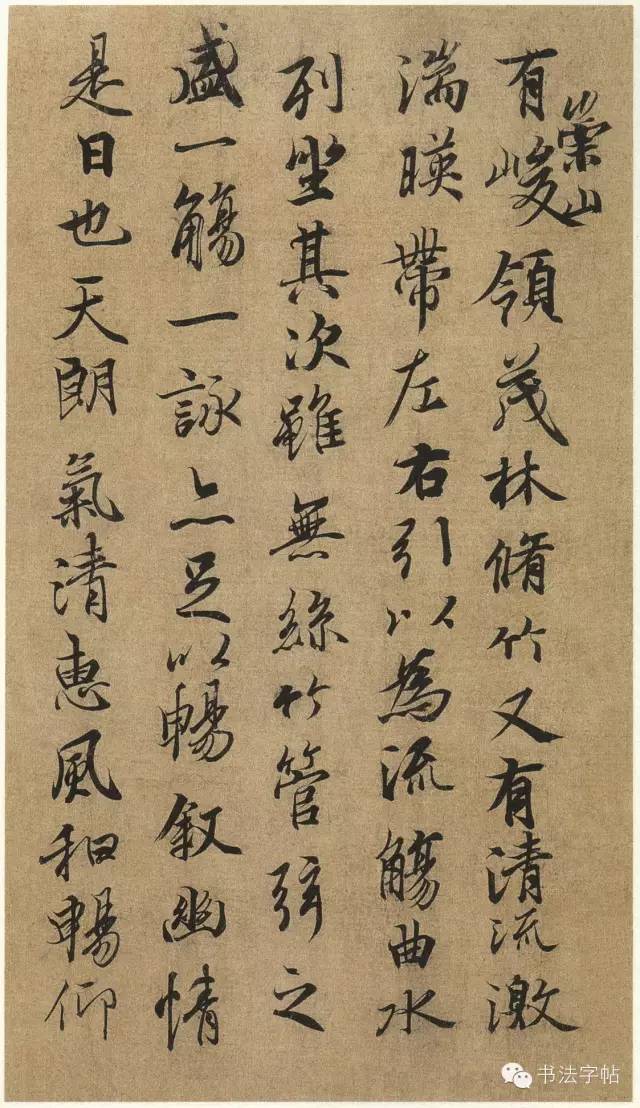 有崇山峻領茂林脩竹又有清流激
湍暎帶左右引以為流觴曲水
列坐其次雖無絲竹管弦之
盛一觴一詠亦足以暢敘幽情
是日也天朗氣清惠風和暢仰
书法字帖